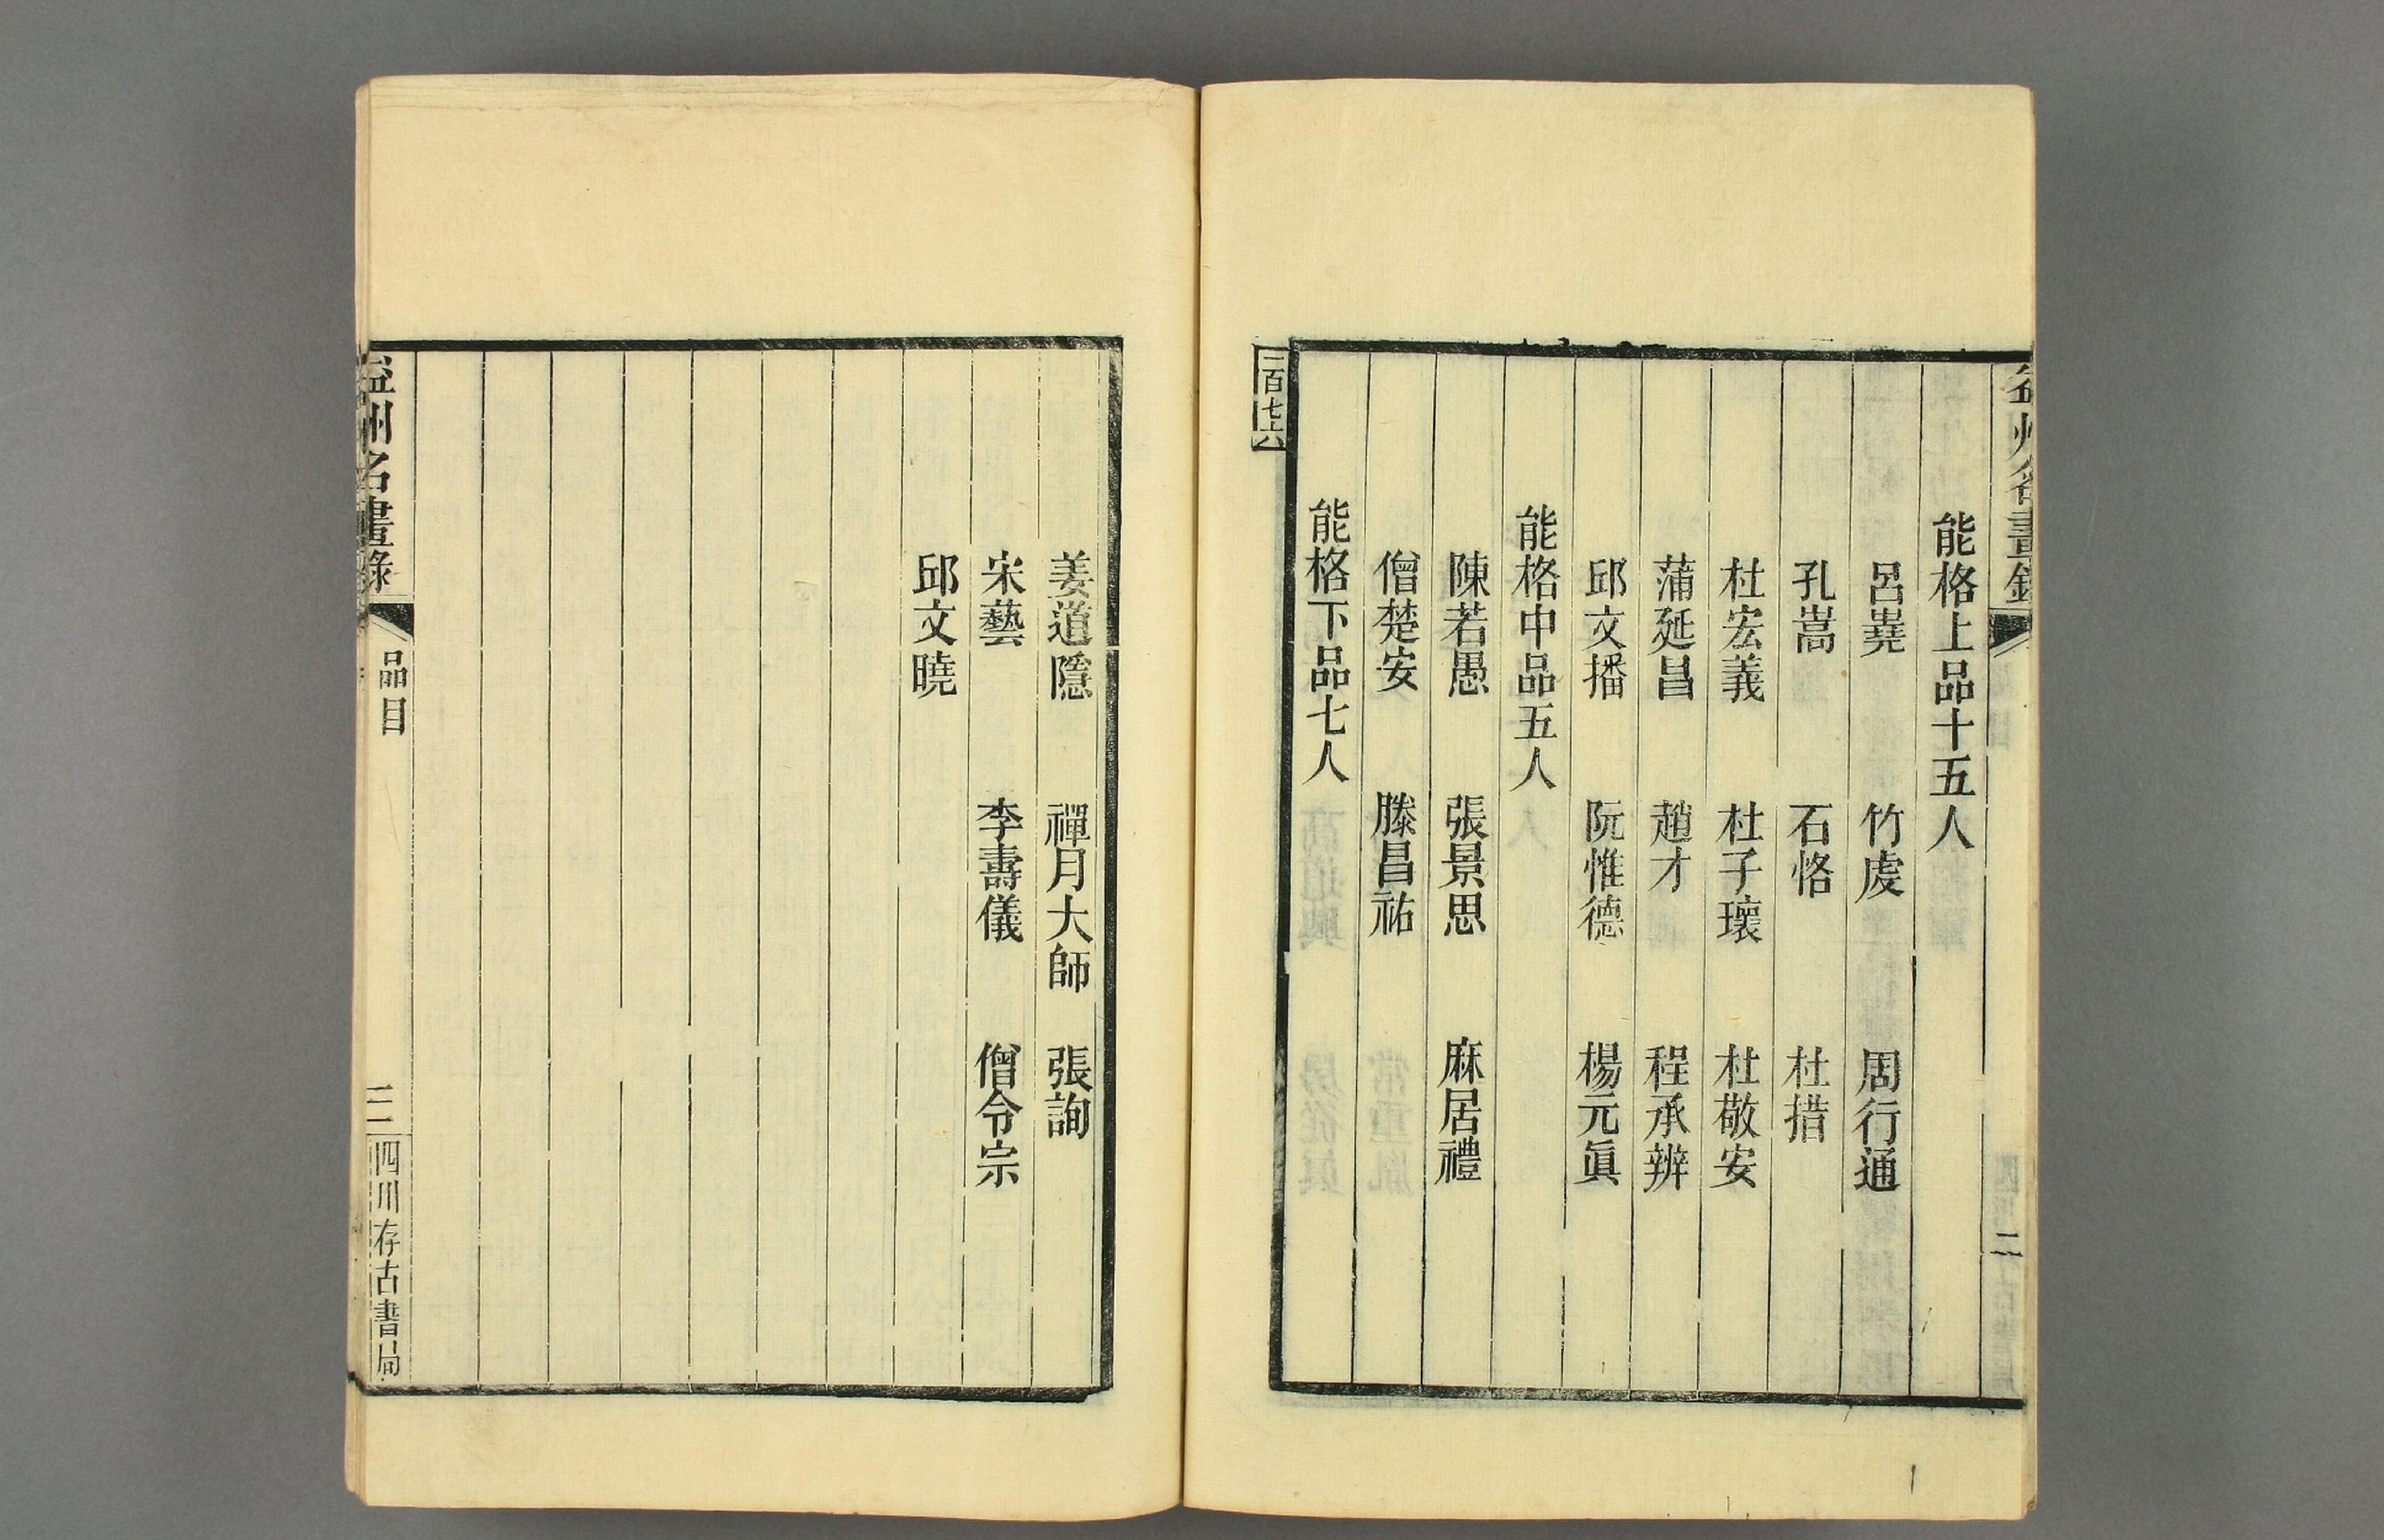 益州名畫錄
二
能格上品十五人
呂嶤 竹虔 周行通
孔嵩 石恪 杜措
杜宏義 杜子瓌 杜敬安
蒲延昌 趙才 程承辨
邱文播 阮惟德 楊元眞
能格中品五人
陳若愚 張景思 麻居禮
僧楚安 滕昌祐
能格下品七人
二百七六
姜道隱 禪月大師 張詢
宋藝 李壽儀 僧令宗
邱文曉
益州名畫錄 品目 三 四川存古書局